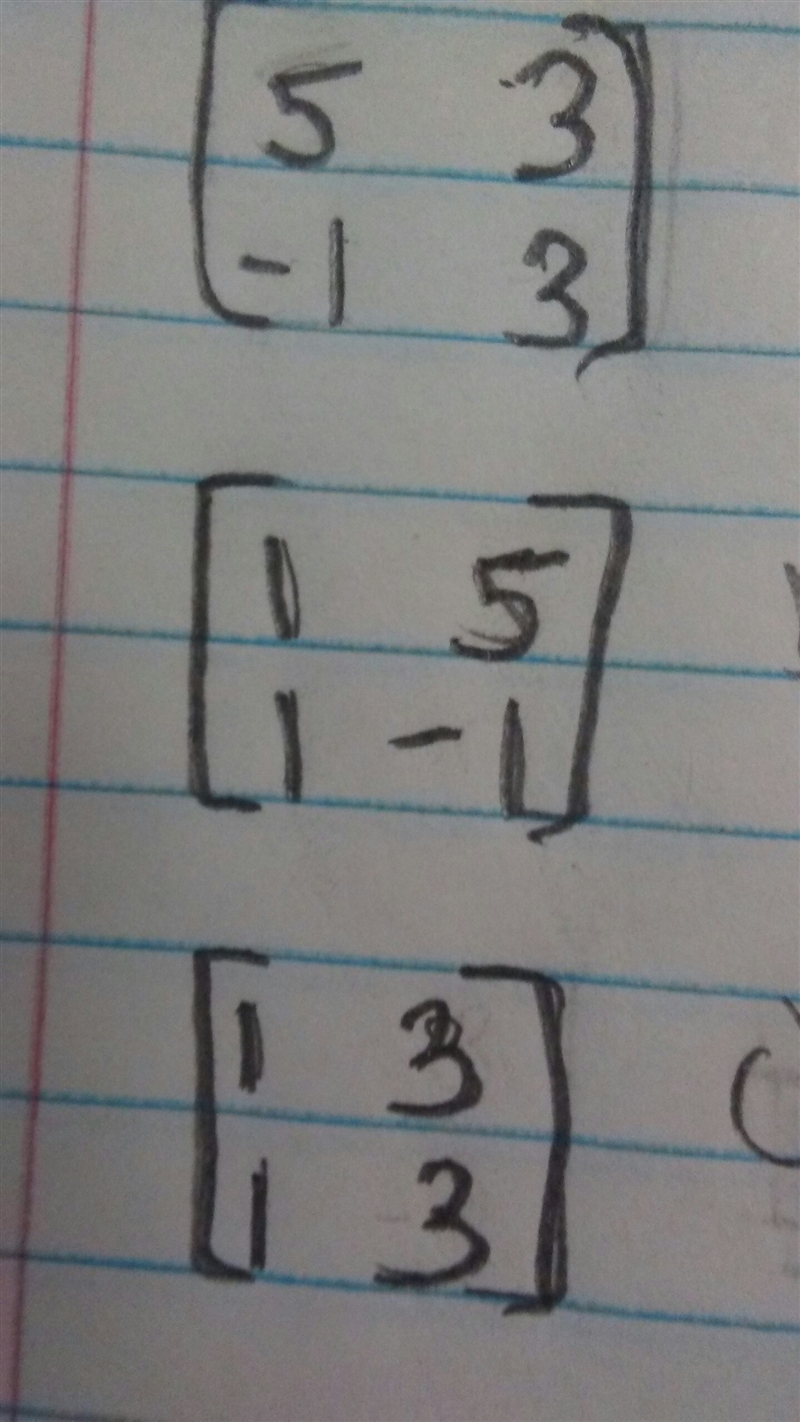 5 3
-1 3
1 5
1 -1
1 3
1 3